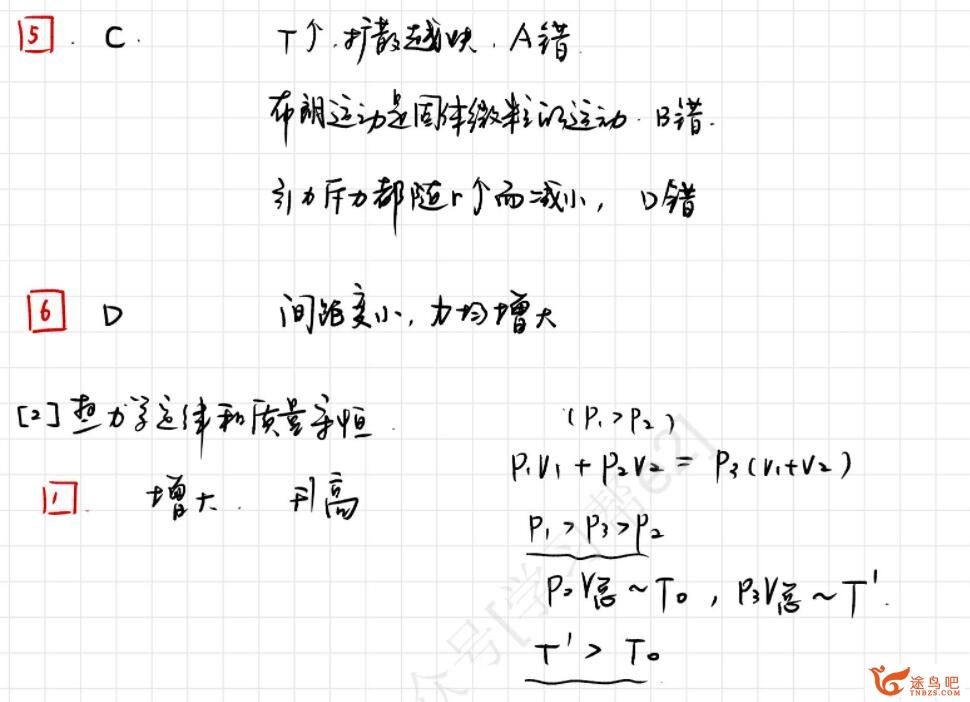 5. C. T↑.扩散越快. A错.
布朗运动是固体微粒的运动. B错.
引力斥力都随r↑而减小, D错
6 D 间距变小, 力均增大
[2]热力学定律和质量守恒.
(P₁>P₂)
P₁V₁+P₂V₂=P₃(V₁+V₂)
1. 增大. 升高
P₁>P₃>P₂
P₂V总~T₀, P₃V总~T'.
T'>T₀
众号[学习帮62]
途鸟吧
TNBZS.COM